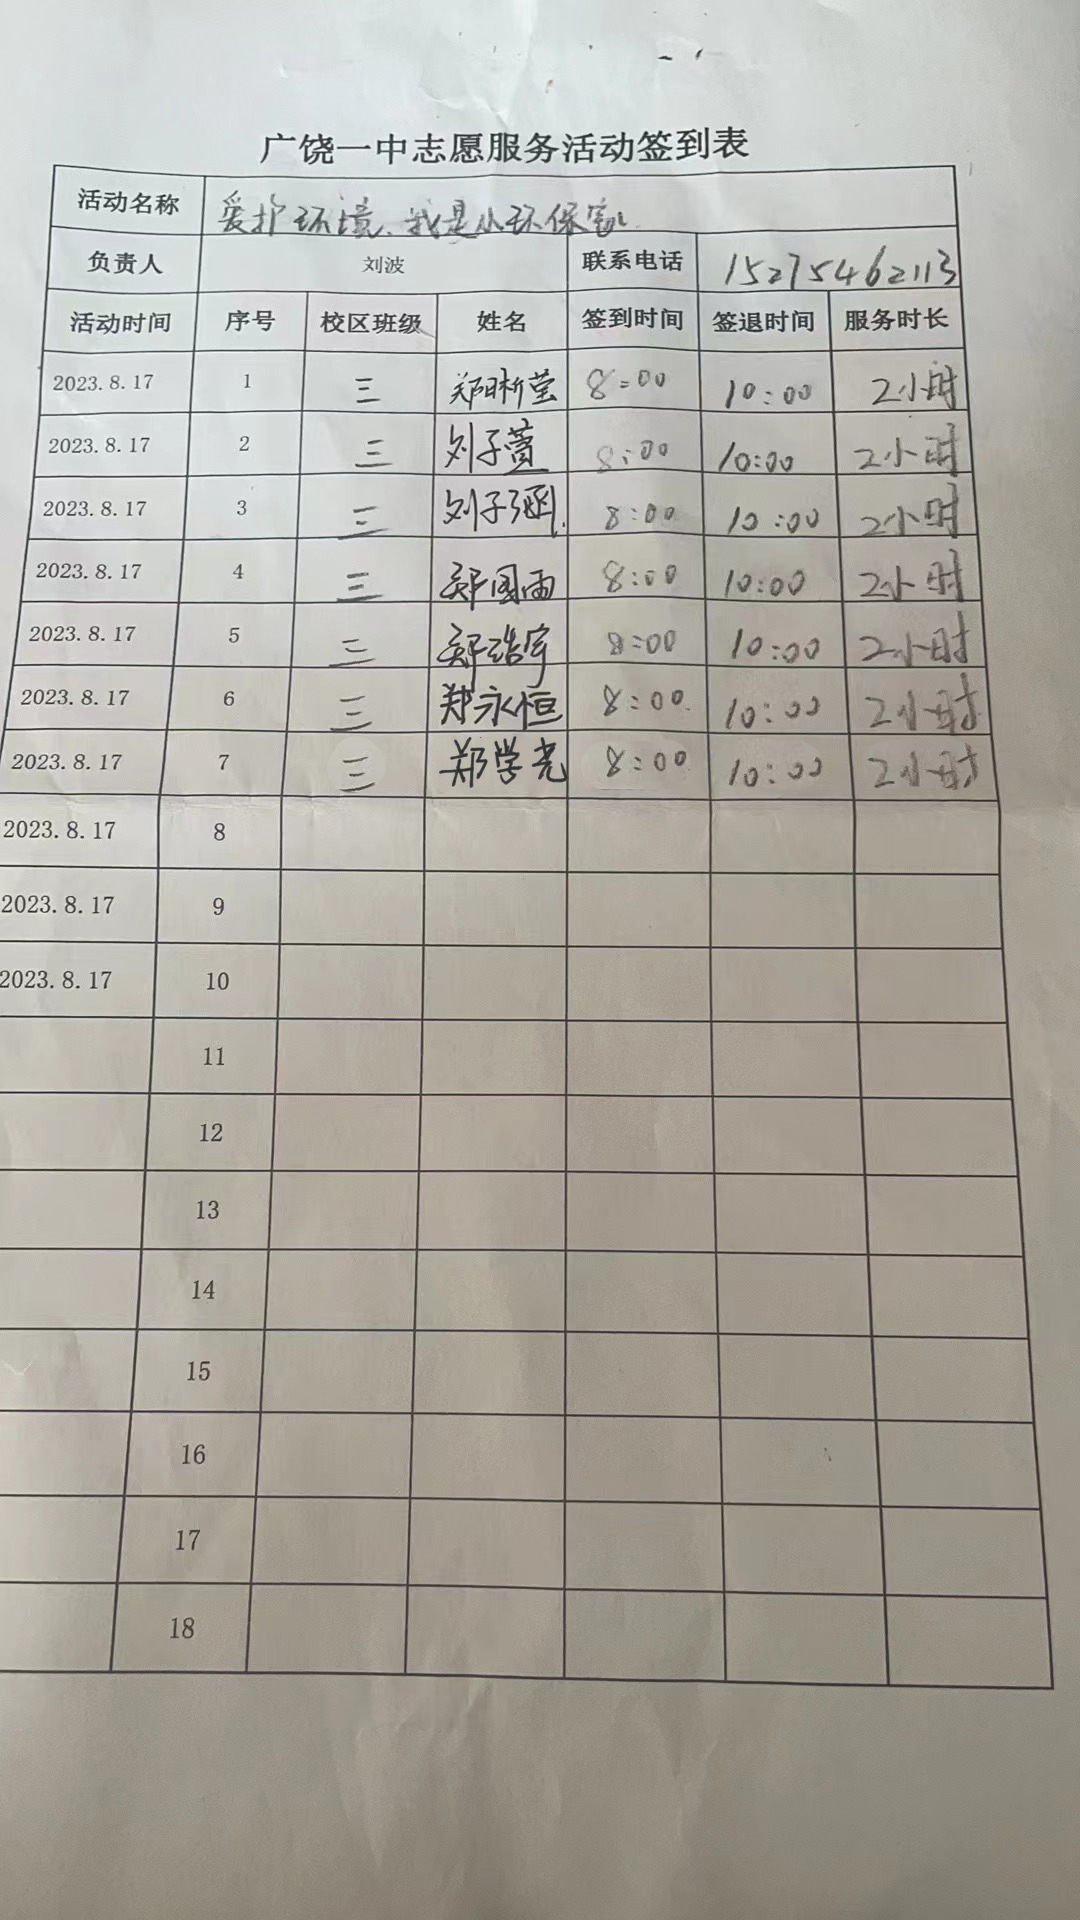 广饶一中志愿服务活动签到表
活动名称 爱护环境、我是小环保家
负责人 刘波 联系电话 15275462113
活动时间 序号 校区班级 姓名 签到时间 签退时间 服务时长
2023.8.17 1 三 郑晰莹 8:00 10:00 2小时
2023.8.17 2 三 刘子萱 8:00 10:00 2小时
2023.8.17 3 三 刘子涵 8:00 10:00 2小时
2023.8.17 4 三 郑国雨 8:00 10:00 2小时
2023.8.17 5 三 郑浩宇 8:00 10:00 2小时
2023.8.17 6 三 郑永恒 8:00 10:00 2小时
2023.8.17 7 三 郑学光 8:00 10:00 2小时
2023.8.17 8
2023.8.17 9
2023.8.17 10
11
12
13
14
15
16
17
18